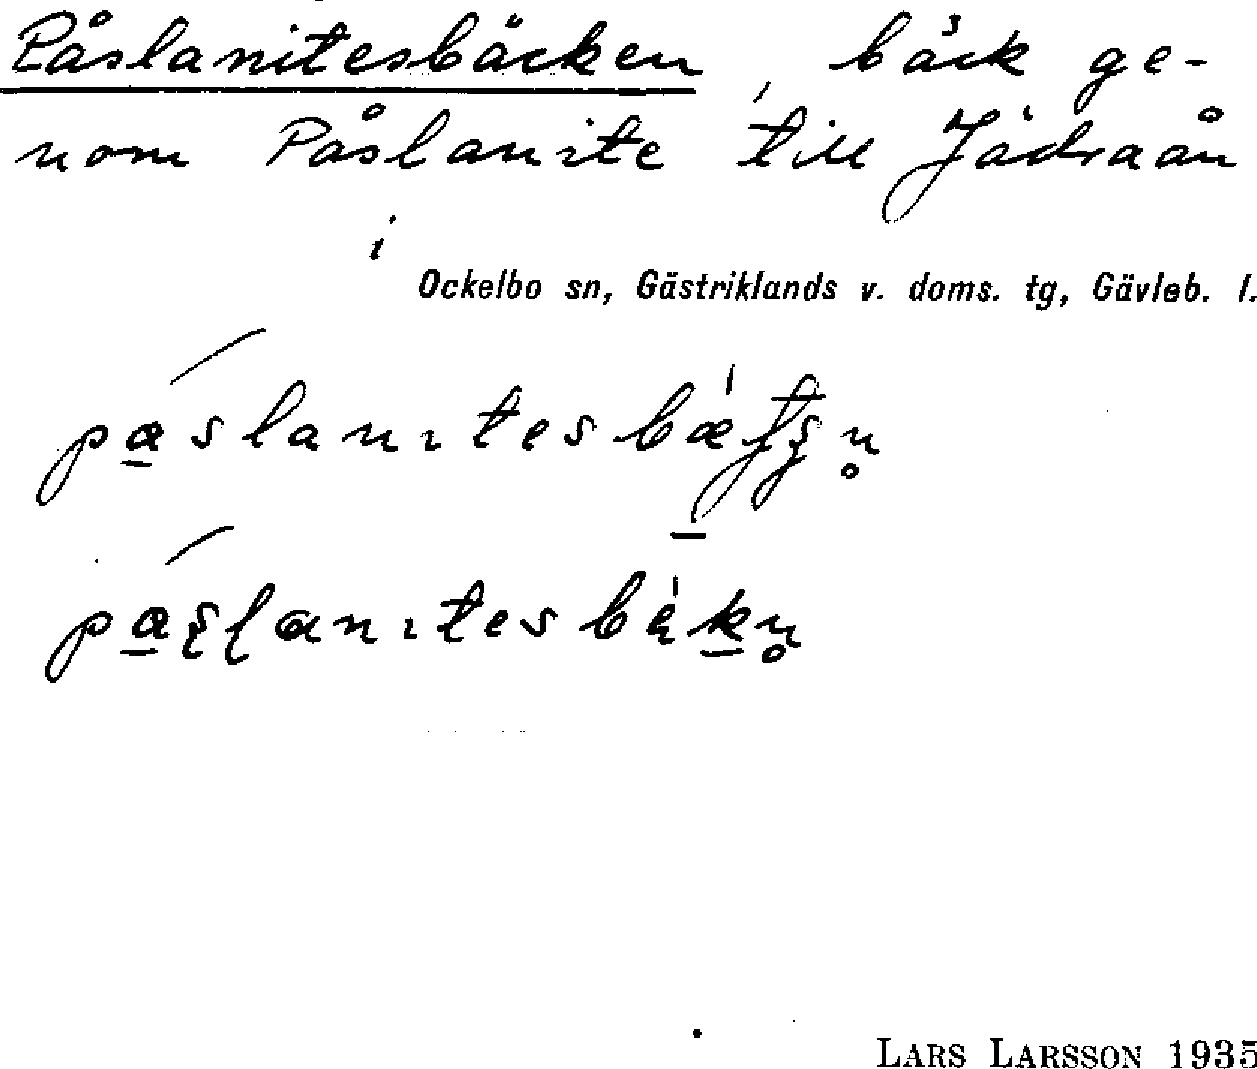 Påslanitesbäcken, bäck ge-
nom Påslanite till Jädraån
i
Ockelbo sn, Gästriklands v. doms. tg, Gävleb. l.
LARS LARSSON 1935